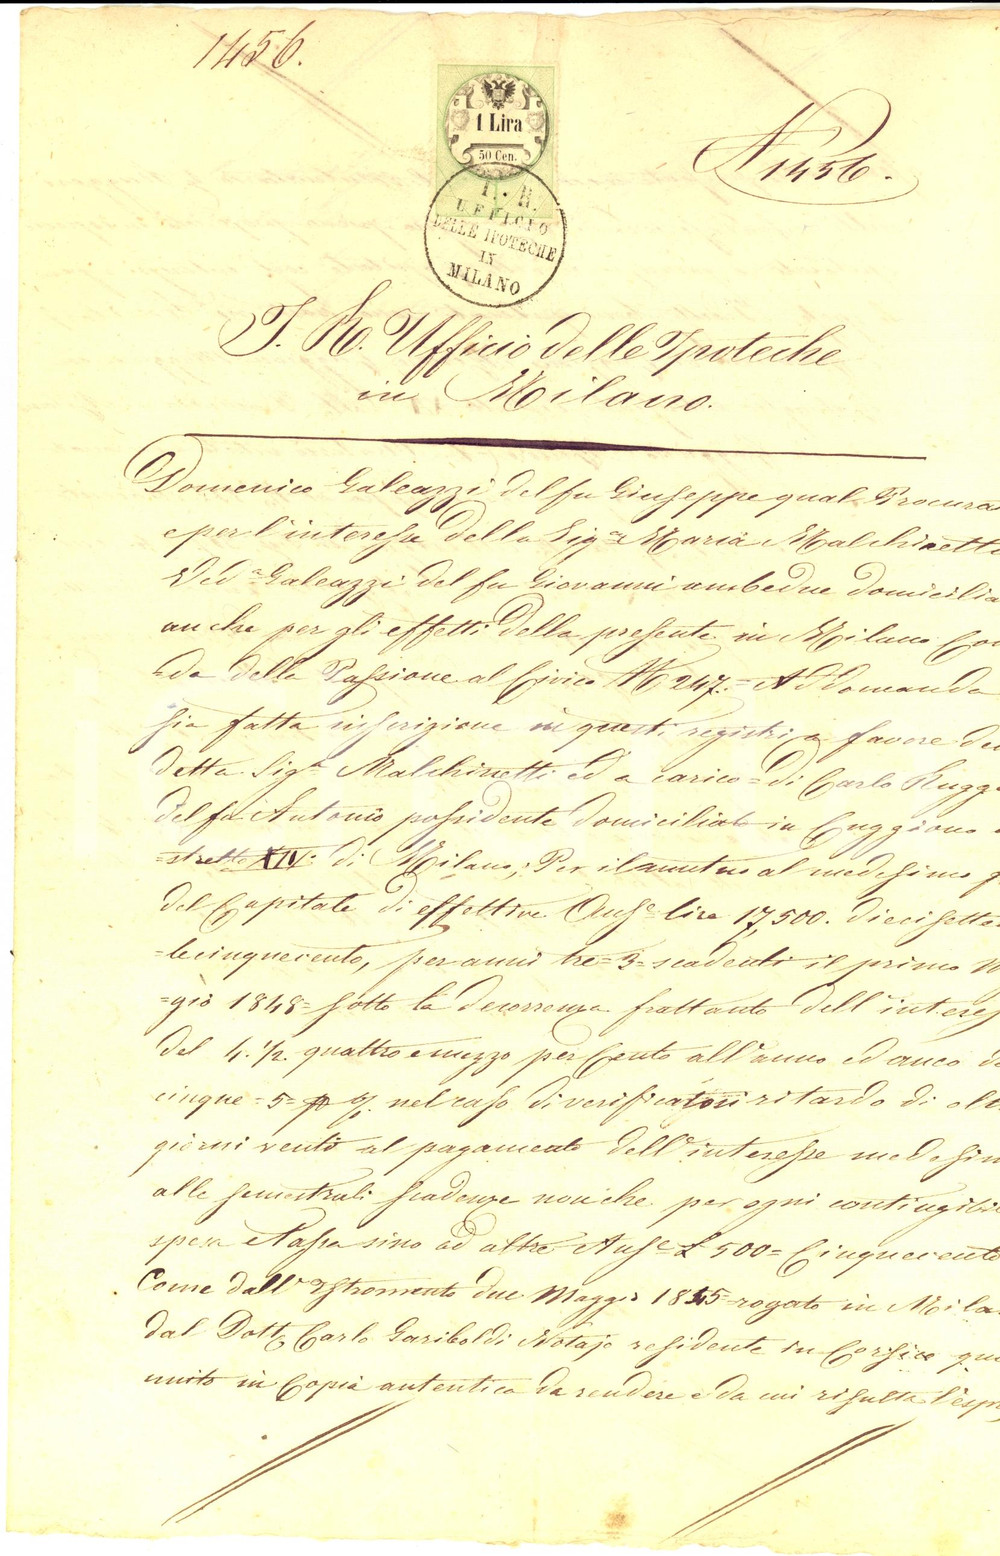 1456.
1 Lira
50 Cen.
N 1456.
I. R.
UFFICIO
DELLE IPOTECHE
IN
MILANO
I. R. Ufficio delle Ipoteche
in Milano.
Domenico Galeazzi del fu Giuseppe qual Procura
e per l'interesse della Sig.ra Maria Malchinetti
Ved.a Galeazzi del fu Giovanni ambedue domicilia
anche per gli effetti della presente in Milano Con
da della Passione al Civico N 247.= Addomanda
sia fatta inscrizione in questi registri a favore del
detta Sig.ra Malchinetti ed a carico= di Carlo Rugg
del fu Antonio possidente domiciliato in Cuggiono
=stretto XIV. di Milano; Per il mutuo al medesimo
del Capitale di effettive Aus.e lire 17,500. diecisette
=lecinquecento, per anni tre=3=scadenti il primo M
=gio 1848= sotto la decorrenza frattanto dell'interes
del 4.1/2. quattro e mezzo per Cento all'anno ed anco de
cinque =5= p % nel caso di verificatosi ritardo di olt
giorni venti al pagamento dell'interesse medesim
alle semestrali scadenze nonché per ogni contingibil
spesa e tassa sino ad altre Aus.e £ 500= Cinquecento
Come dall'Istromento due Maggio 1845=rogato in Mila
dal Dott. Carlo Gariboldi Notajo residente in Corsico
unito in Copia autentica da rendere e da cui risulta l'esp